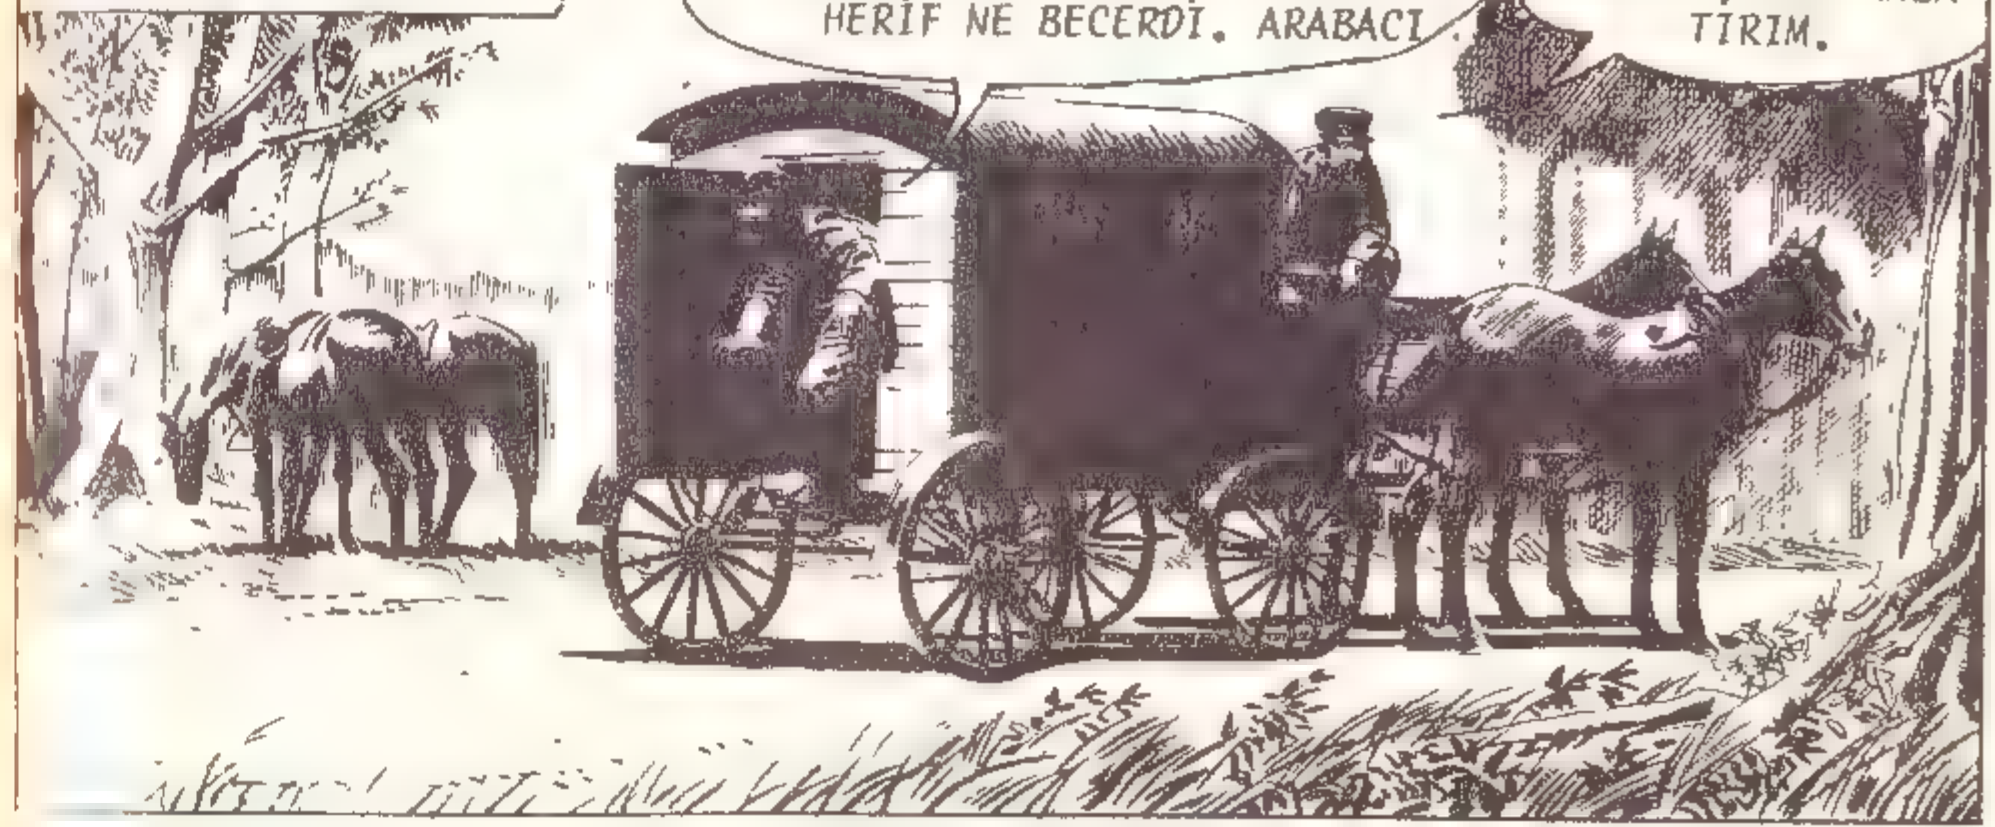 HERİF NE BECERDİ. ARABACI.
TİRİM.